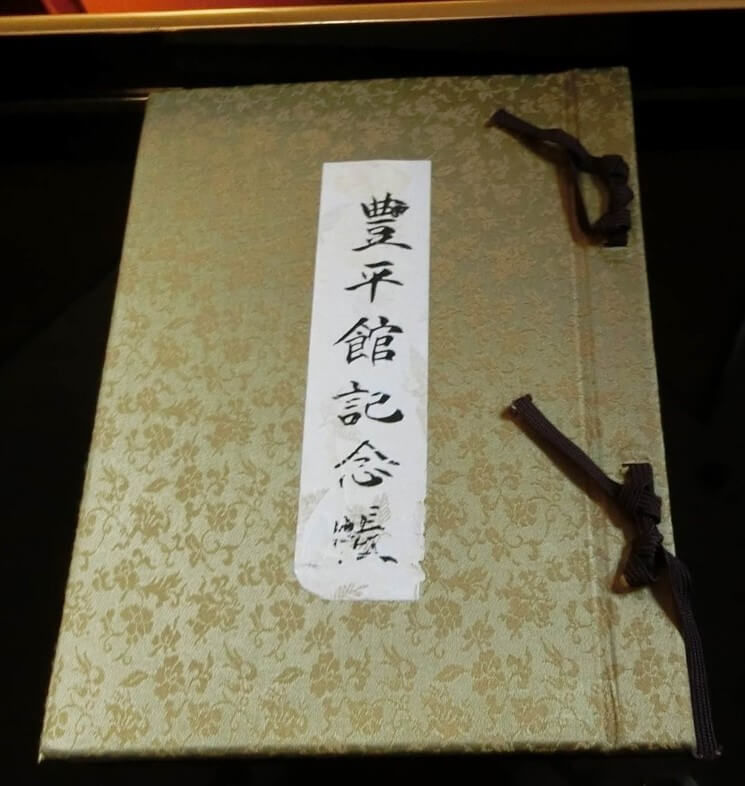 豐平館記念帳